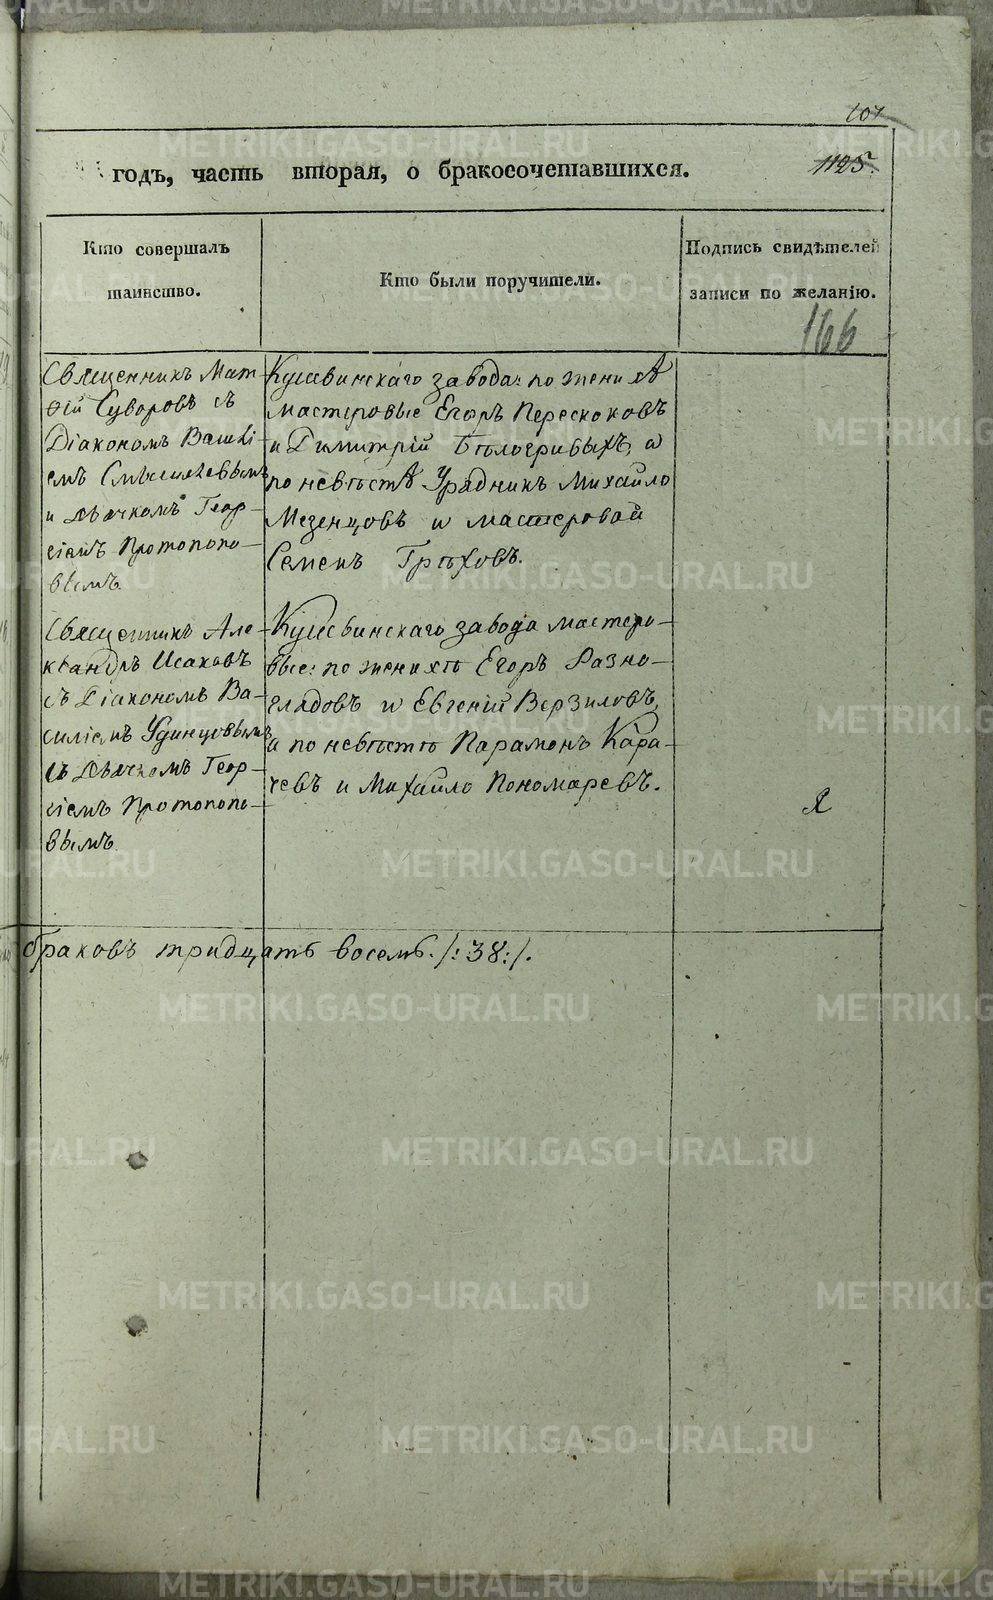 107
годъ, часть вторая, о бракосочетавшихся.
1125.
Кто совершалъ
таинство.
Кто были поручители.
Подпись свидѣтелей
записи по желанію.
166
Священникъ Мат-
ѳій Суворовъ съ
Діакономъ
и Дьячкомъ Геор-
гіемъ Протопопо-
вымъ.
Кушвинскаго завода: по женихѣ
мастеровые Егоръ Перескоковъ
и Димитрій Бѣлогривыхъ, а
по невѣстѣ Урядникъ Михайло
Мезенцовъ и мастеровой
Семенъ Грѣховъ.
Священникъ Але-
ксандръ Исаковъ
съ Діакономъ Ва-
силіемъ Удинцовымъ
съ Дьячкомъ Геор-
гіемъ Протопопо-
вымъ.
Кушвинскаго завода мастеро-
вые: по женихѣ Егоръ Разно-
гладовъ и Евгеній Верзиловъ,
а по невѣстѣ Парамонъ Кара-
чевъ и Михайло Пономаревъ.
браковъ тридцать восемь /:38:/.
METRIKI.GASO-URAL.RU